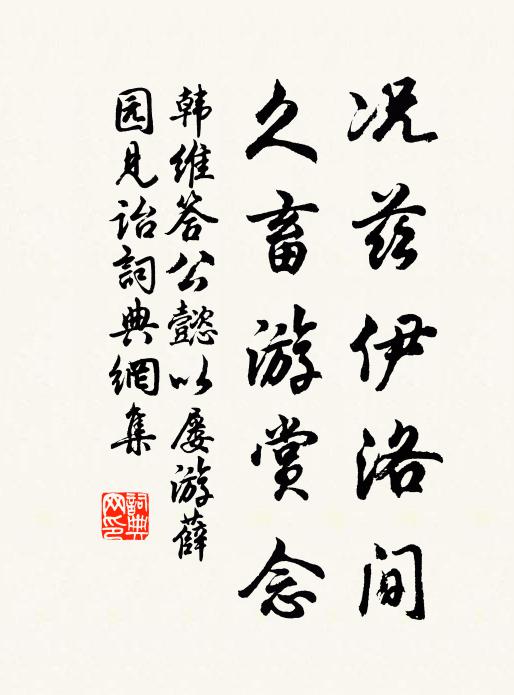 况兹伊洛间
久畜游赏念
韩维答公懿以屡游薛
园见诒詞典網集
詞典
网印